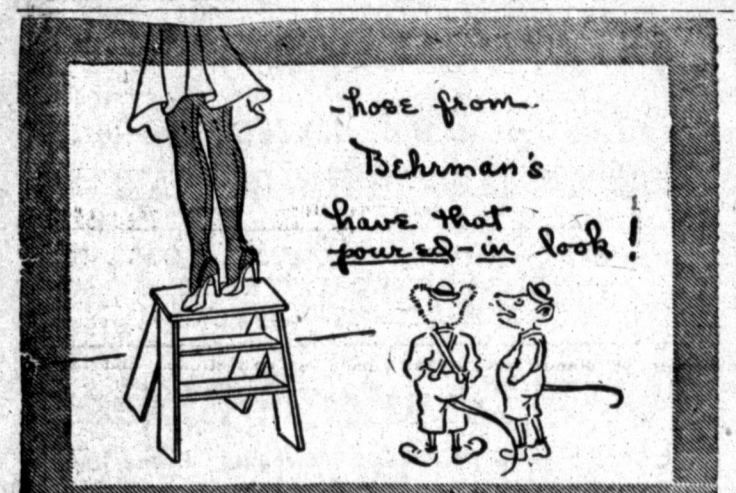 -hose from
Behrman's
have that
poured-in look!